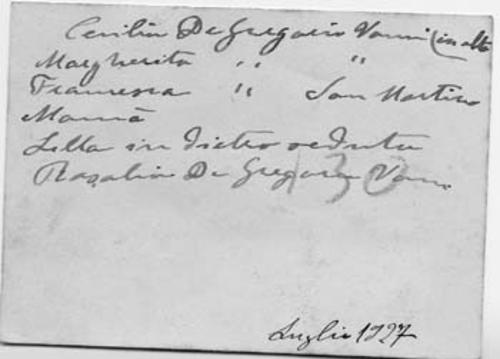 Cecilia De Gregorio Vanni (in alto
Margherita " "
Francesca " San Martino
Mamà
Lella in dietro seduta
Rosalia De Gregorio Vanni
130
Luglio 1927